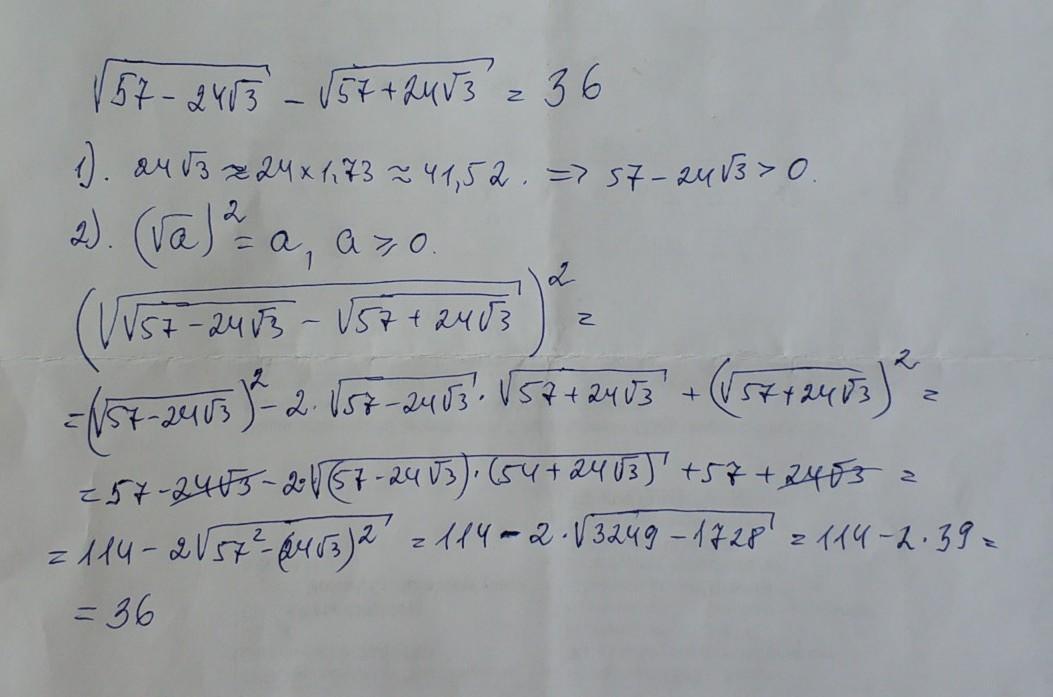 √(57 - 24√3) - √(57 + 24√3) = 36
1). 24√3 ≈ 24 × 1,73 ≈ 41,52. => 57 - 24√3 > 0.
2). (√a)² = a, a ≥ 0.
(√(√(57 - 24√3) - √(57 + 24√3)))² =
= (√(57 - 24√3))² - 2 · √(57 - 24√3) · √(57 + 24√3) + (√(57 + 24√3))² =
= 57 - 24√3 - 2 · √((57 - 24√3) · (54 + 24√3)) + 57 + 24√3 =
= 114 - 2√(57² - (24√3)²) = 114 - 2 · √(3249 - 1728) = 114 - 2 · 39 =
= 36